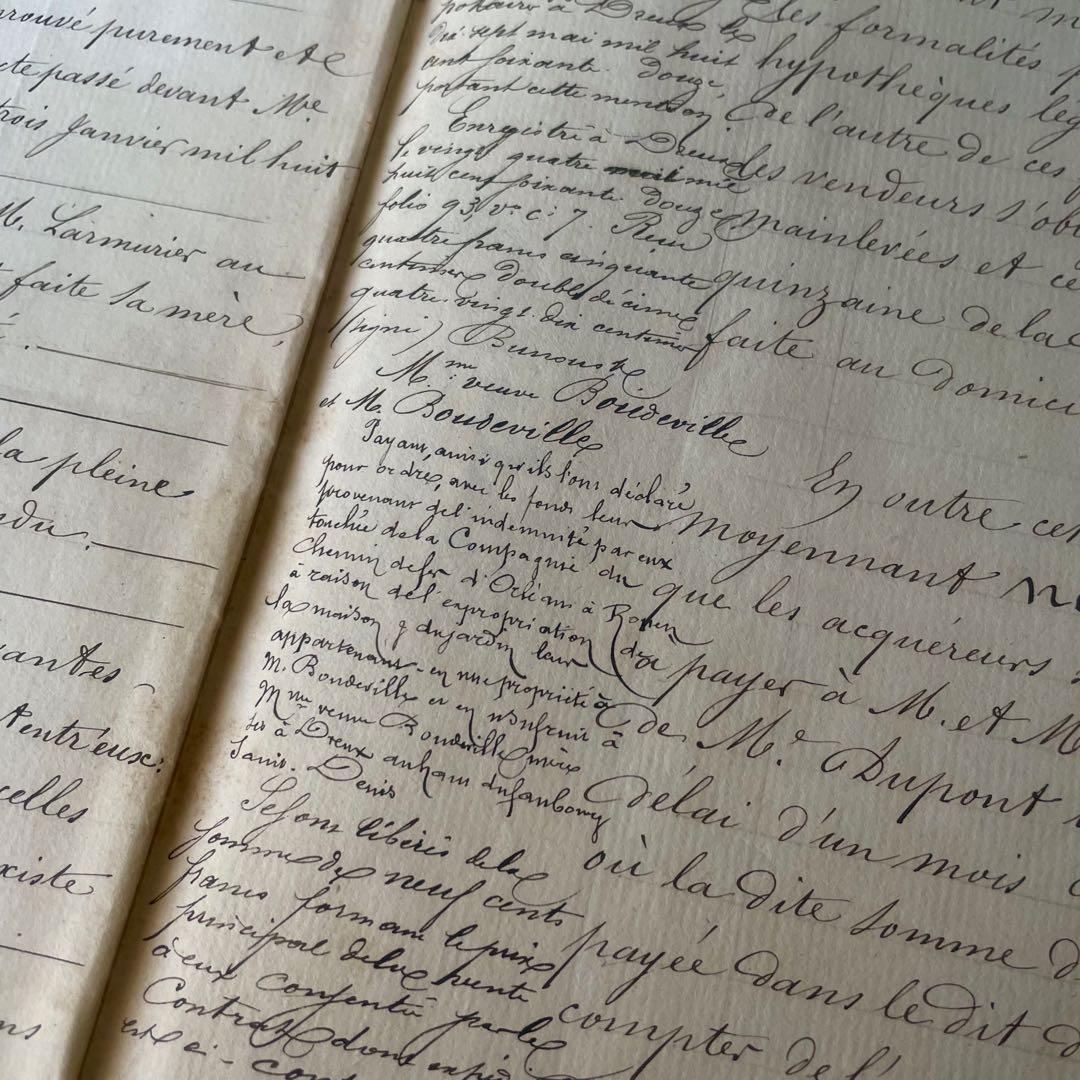 rouvé purement et
cte passé devant Me
trois Janvier mil huit
M. Larmurier au
t faite sa mère,
la pleine
ndu.
santes
t entr'eux:
celles
existe
ns
à Dreux le
dix sept mai mil huit
cent soixante douze
portant cette mention.
Enregistré à Dreux
le vingt quatre mai mil
huit cent soixante douze
folio 93, vo c: 7. Reçu
quatre francs cinquante
centimes doubles décimes
quatre-vingt dix centimes
(signé)
Mme veuve Boudeville
et M. Boudeville
Payant, ainsi qu'ils l'ont déclaré
pour ordre, avec les fonds leur
provenant de l'indemnité par eux
touchée de la Compagnie du
Chemin de fer d'Orléans à Rouen
à raison de l'expropriation de
la maison & du jardin leur
appartenant en nue propriété à
M. Boudeville et en usufruit à
Mme veuve Boudeville mère
sis à Dreux au ham du faubourg
Saint-Denis
Se sont libérés de la
somme de neuf cents
francs formant le prix
principal de la vente
à eux consentie par le
Contrat dont
est ci-
des formalités
hypothèques lég
de l'autre de ces
les vendeurs s'ob
mainlevées et ce
quinzaine de la
faite au domici
En outre cet
moyennant
que les acquéreurs
à payer à M. et M
de Me Dupont
délai d'un mois
où la dite somme d
payée dans le dit d
compter de l'